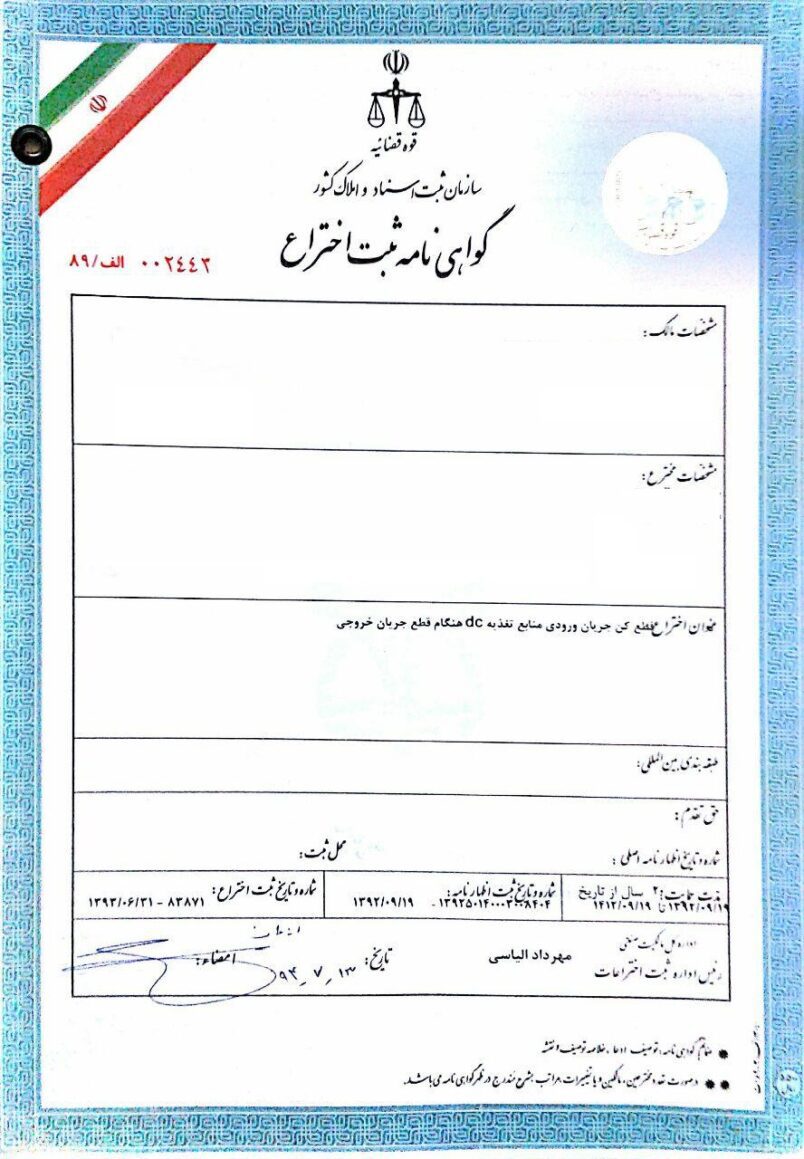 قوه قضائیه
سازمان ثبت اسناد و املاک کشور
گواهی نامه ثبت اختراع
۰۰۲٤٤۳ الف/۸۹
مشخصات مالک:
مشخصات مخترع:
عنوان اختراع: قطع کن جریان ورودی منابع تغذیه dc هنگام قطع جریان خروجی
طبقه بندی بین المللی:
حق تقدم:
شماره و تاریخ اظهارنامه اصلی:
محل ثبت:
مدت حمایت: ۲۰ سال از تاریخ
۱۳۹۲/۰۹/۱۹ تا ۱۴۱۲/۰۹/۱۹
شماره و تاریخ ثبت اظهارنامه:
۱۳۹۲۵۰۱۴۰۰۰۳۰۰۸۴۰۴ - ۱۳۹۲/۰۹/۱۹
شماره و تاریخ ثبت اختراع:
۸۳۸۷۱ - ۱۳۹۳/۰۶/۳۱
اداره کل مالکیت صنعتی
رئیس اداره ثبت اختراعات
مهرداد الیاسی
تاریخ: ۹۴/۷/۱۳
امضاء:
ضمائم گواهی نامه: توصیف، ادعا، خلاصه توصیف و نقشه
درصورت تعدد مخترعین، مالکین و یا تغییرات، مراتب بشرح مندرج در ظهر گواهی نامه می باشد.